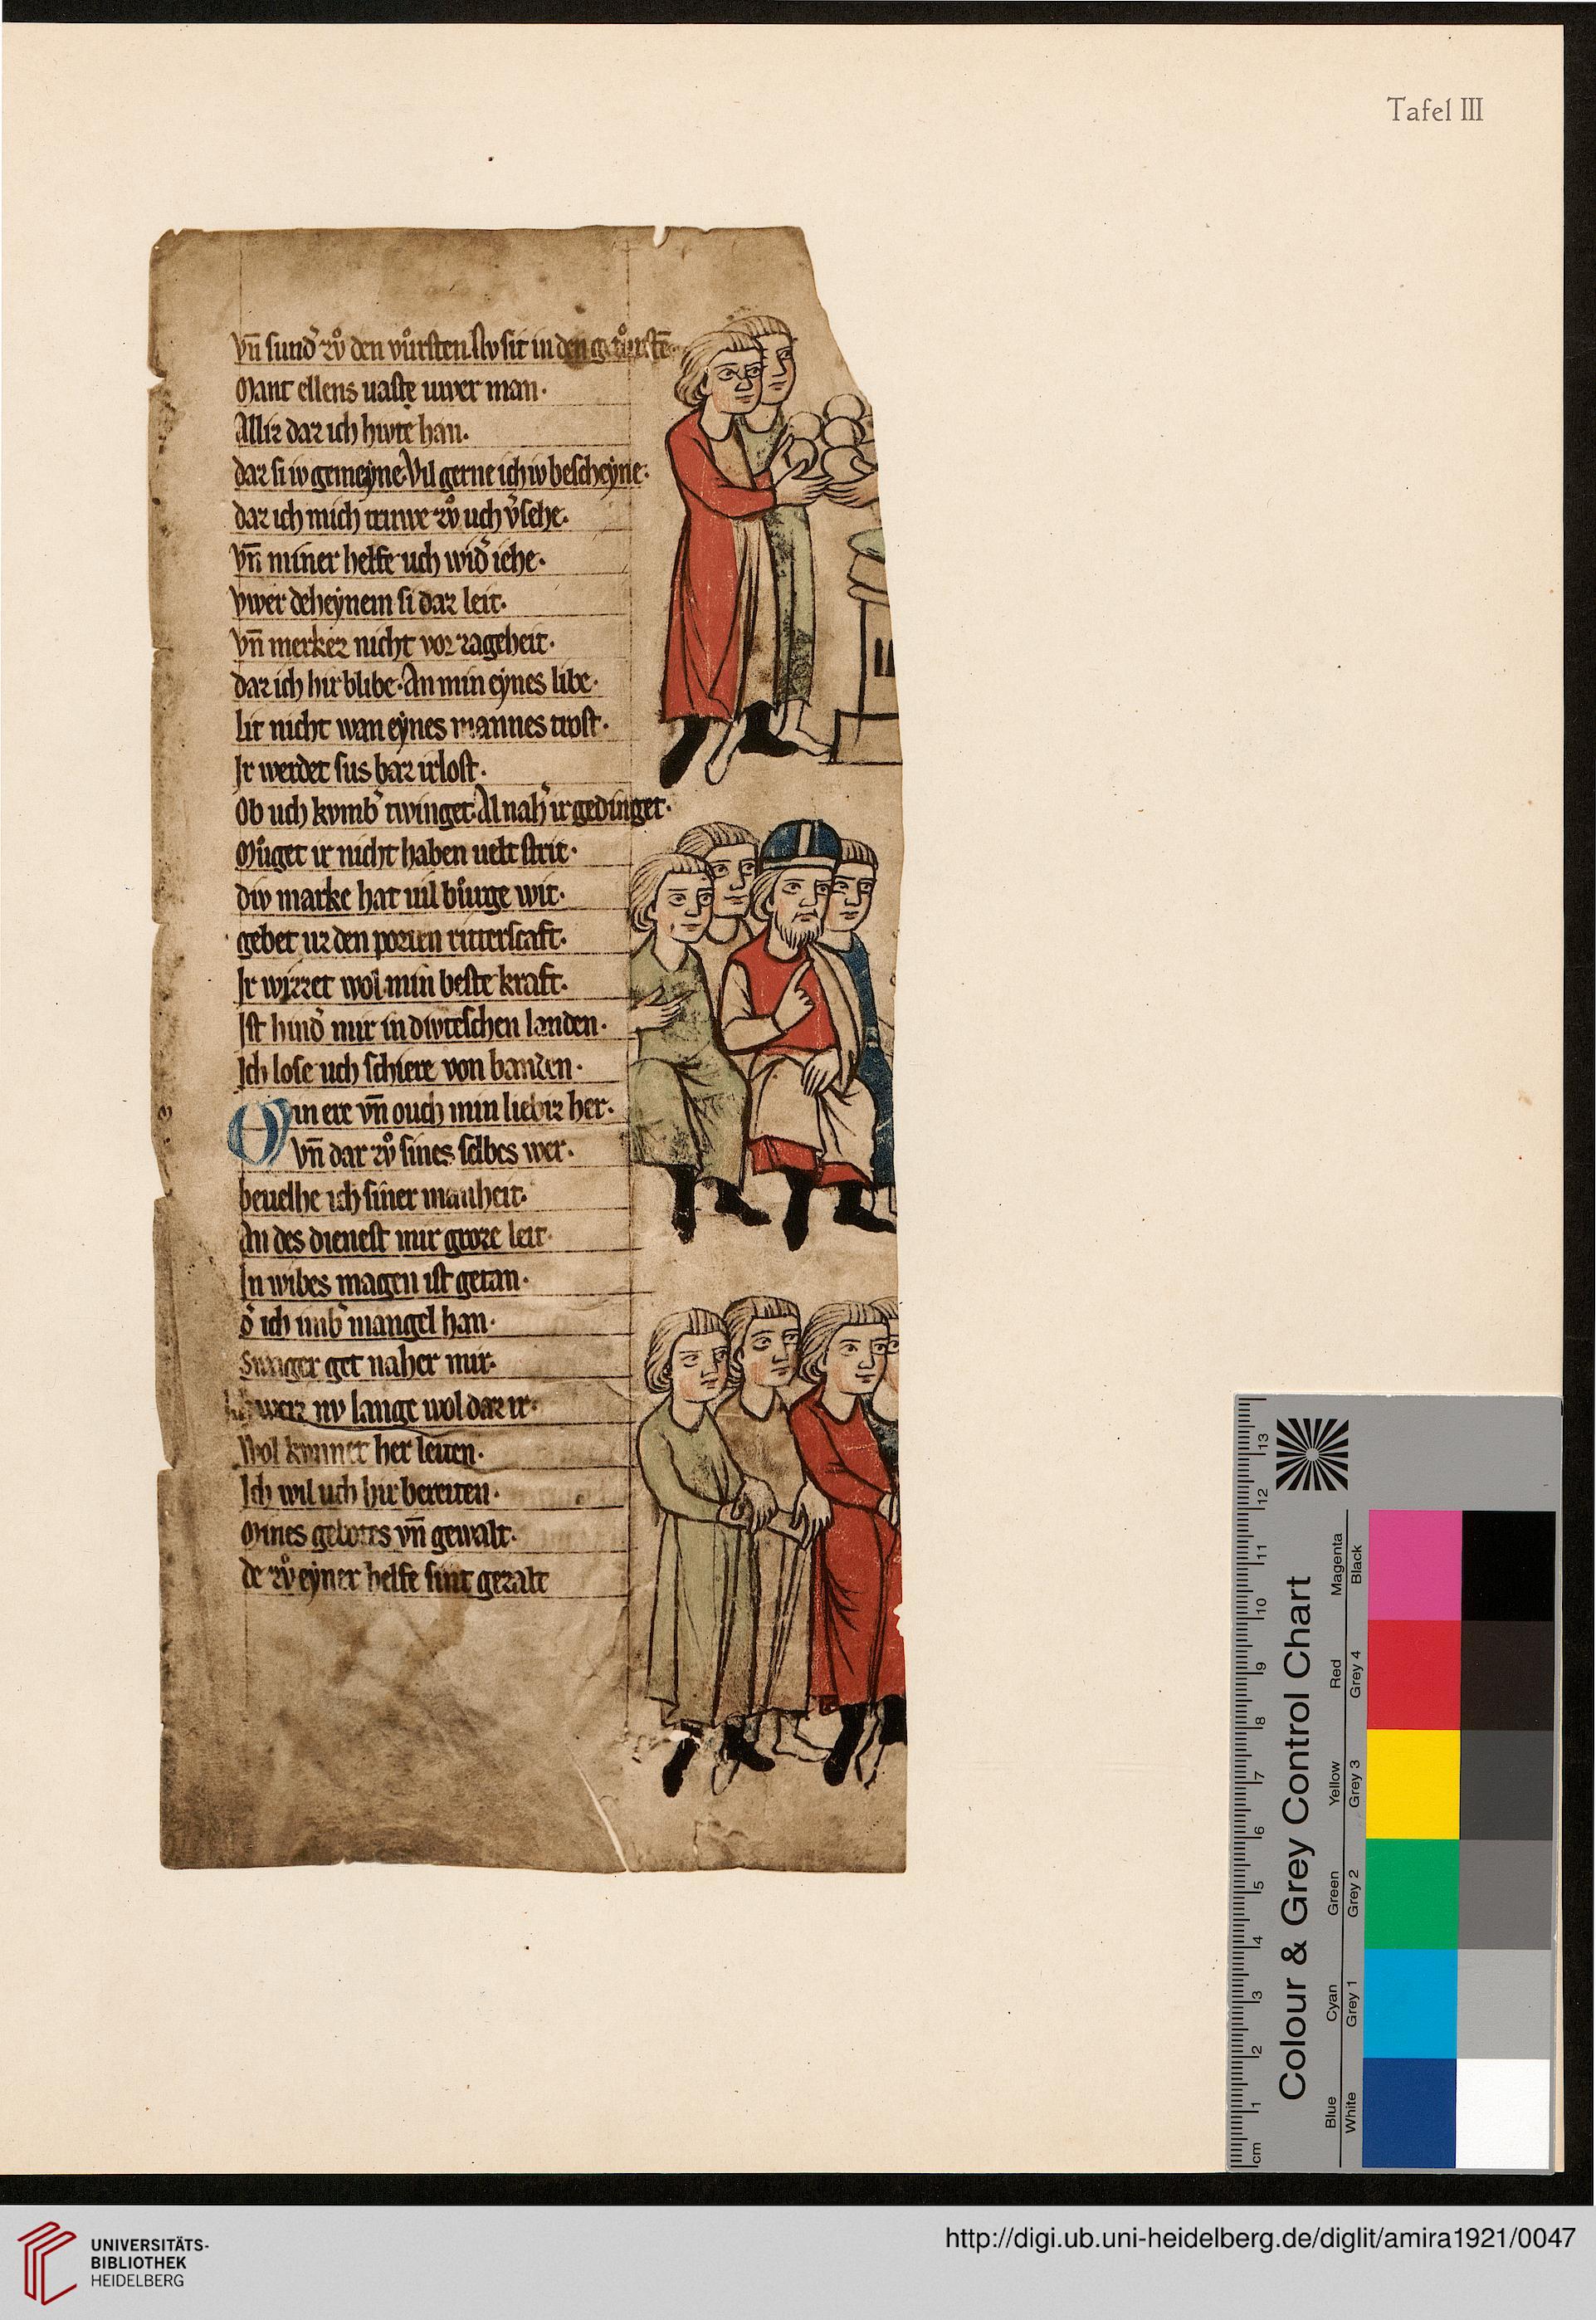 Tafel III
vn̄ sund' zů den vůrsten. Nv sit in den getůrstē.
Mant ellens uaste uwer man.
Alliz daz ich hwte han.
daz si iv gemeyne. Vil gerne ich iv bescheyne.
daz ich mich truwe zů uch v'sehe.
vn̄ miner helfe uch wid' iehe.
vwer deheynem si daz leit.
vn̄ merkez nicht vor zageheit.
daz ich hir blibe. An min eynes libe.
lit nicht wan eynes mannes trost.
Ir werdet sus baz irlost.
Ob uch kvmb' twinget. Al nah' ir gedinget.
Můget ir nicht haben uelt strit.
div marke hat uil bůrge wit.
gebet uz den porten ritterscaft.
Ir wizzet wol min beste kraft.
Ist hind' mir in divteschen landen.
Ich lose uch schiere von banden.
Min ere vn̄ ouch min liebiz her.
vn̄ dar zů sines selbes wer.
beuelhe ich siner manheit.
An des dienest mir groze leit.
In wibes magen ist getan.
d' ich imb' mangel han.
Swiger get naher mir.
wizz nv lange wol daz ir.
Wol kvnnet her leiten.
Ich wil uch hir bereiten.
Mines gebotes vn̄ gewalt.
de zů eyner helfe sint gezalt
Colour & Grey Control Chart
Blue Cyan Green Yellow Red Magenta
White Grey 1 Grey 2 Grey 3 Grey 4 Black
cm 1 2 3 4 5 6 7 8 9 10 11 12 13
UNIVERSITÄTS-
BIBLIOTHEK
HEIDELBERG
http://digi.ub.uni-heidelberg.de/diglit/amira1921/0047